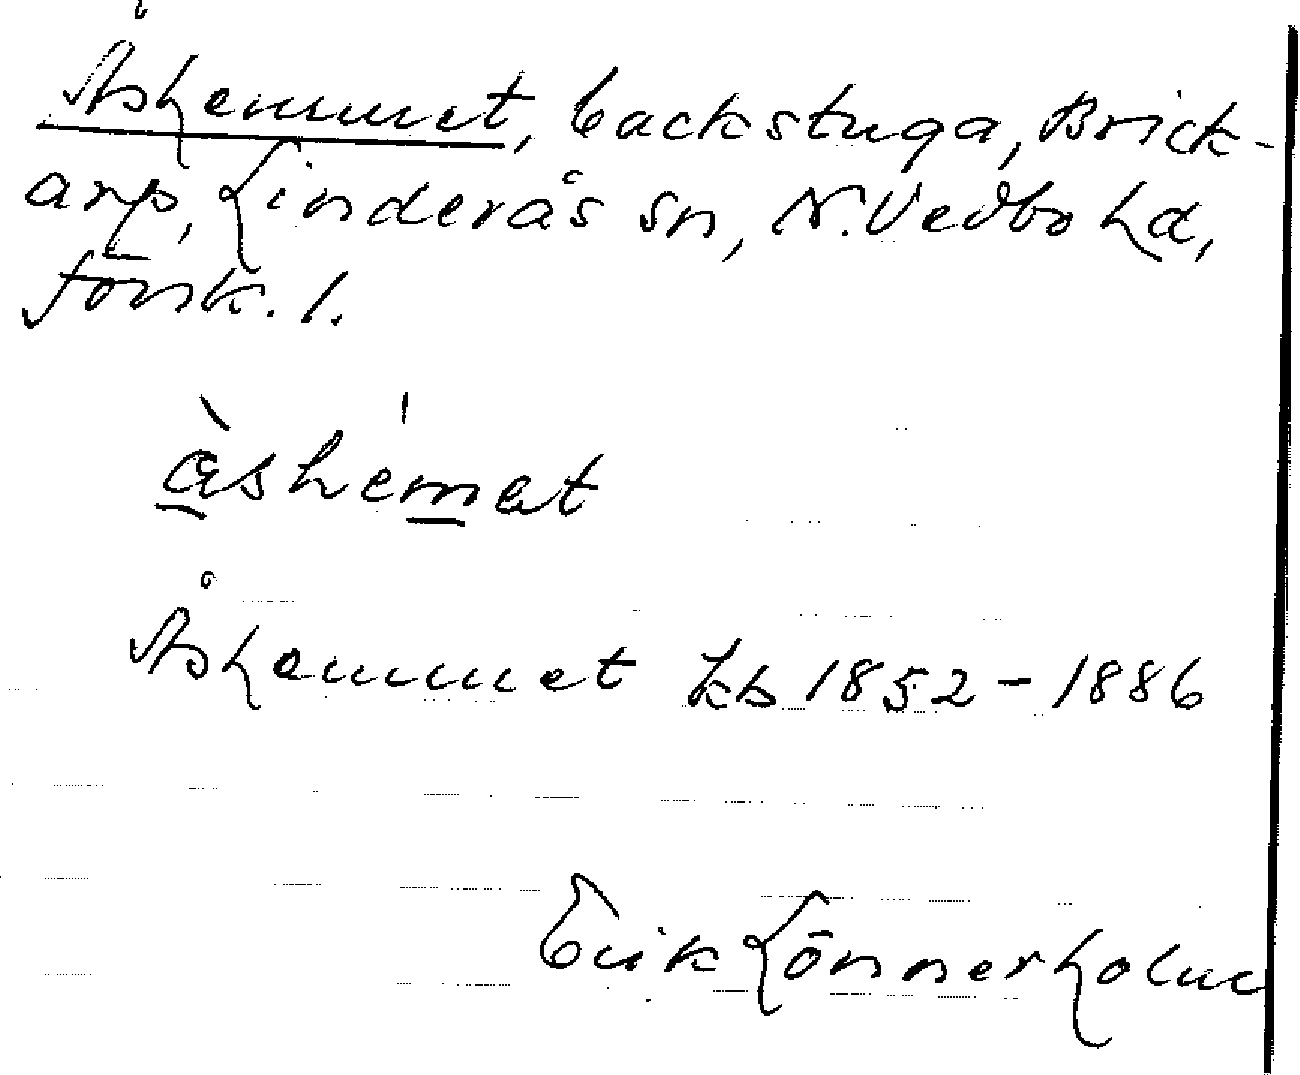 Åshemmet, backstuga, Brick-
arp, Linderås sn, N. Vedbo hd,
Jönk. l.
åshemat
Åshemmet kb 1852-1886
Erik Lönnerholm